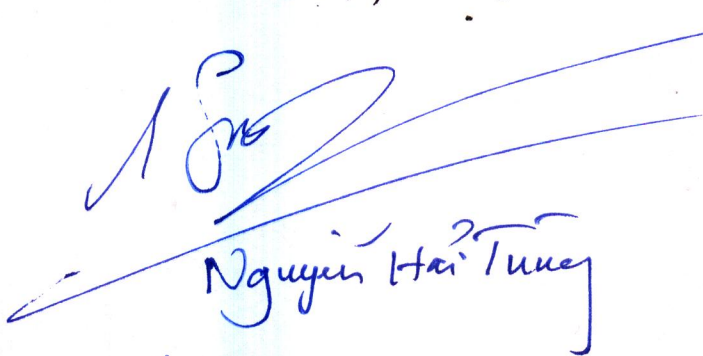 Nguyễn Hải Tùng